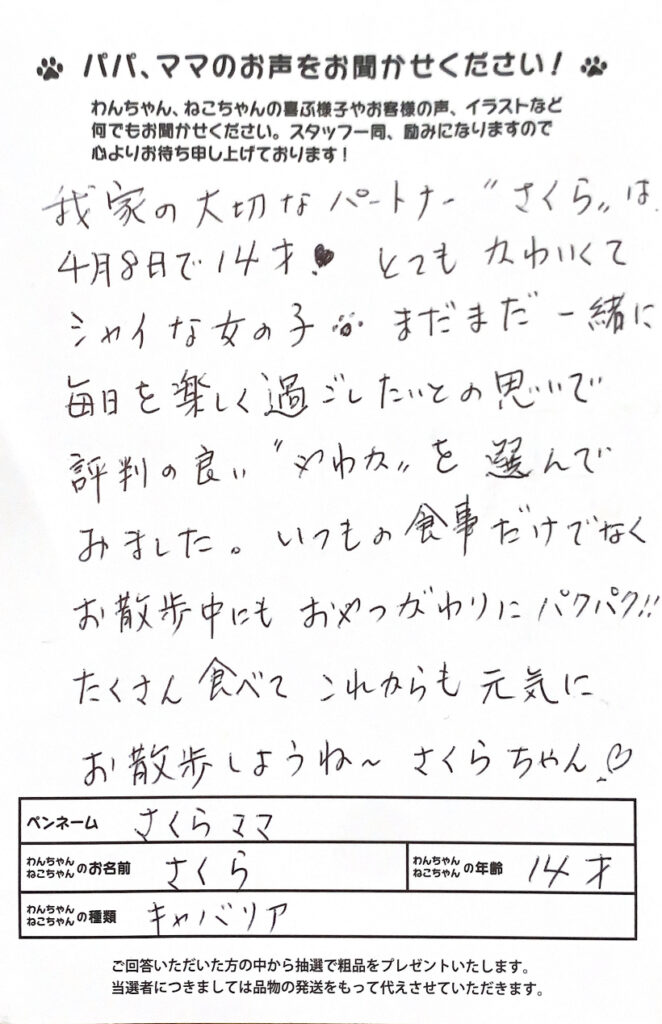 パパ、ママのお声をお聞かせください！
わんちゃん、ねこちゃんの喜ぶ様子やお客様の声、イラストなど
何でもお聞かせください。スタッフ一同、励みになりますので
心よりお待ち申し上げております！
我家の大切なパートナー"さくら"は
4月8日で14才♥ とても カわいくて
シャイな女の子 まだまだ 一緒に
毎日を楽しく過ごしたいとの思いで
評判の良い "やわか"を 選んで
みました。いつもの食事だけでなく
お散歩中にも おやつがわりに パクパク!!
たくさん食べて これからも 元気に
お散歩しようね～ さくらちゃん♡
ペンネーム さくらママ
わんちゃん ねこちゃん のお名前 さくら わんちゃん ねこちゃん の年齢 14才
わんちゃん ねこちゃん の種類 キャバリア
ご回答いただいた方の中から抽選で粗品をプレゼントいたします。
当選者につきましては品物の発送をもって代えさせていただきます。